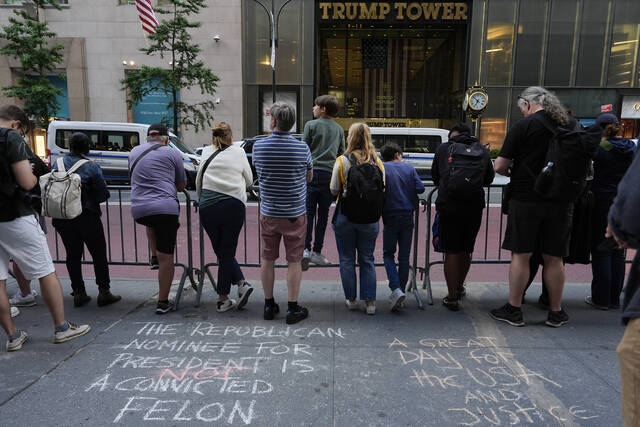 TRUMP TOWER
TRUMP TOWER
THE REPUBLICAN
NOMINEE FOR
PRESIDENT IS
NOT
A CONVICTED
FELON
A GREAT
DAY FOR
THE USA
AND
JUSTICE